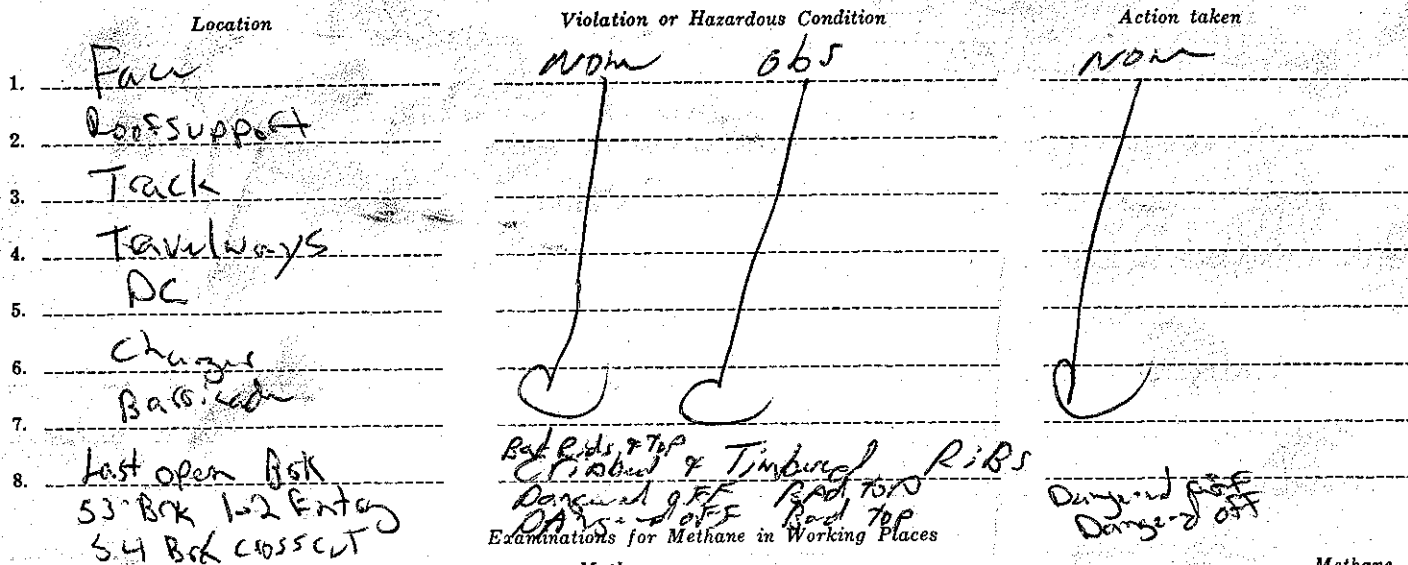 Location Violation or Hazardous Condition Action taken
1. Face None obs None
2. Roof support
3. Track
4. Travelways
5. DC
6. Charger
7. Barricade
8. Last open Brk Bad Ribs & Top
Cribbed & Timbered RiBs
53 Brk 1-2 Entry Dangered off Bad Top Dangered off
54 Brk crosscut DAngered off Bad Top Dangered off
Examinations for Methane in Working Places
Methane